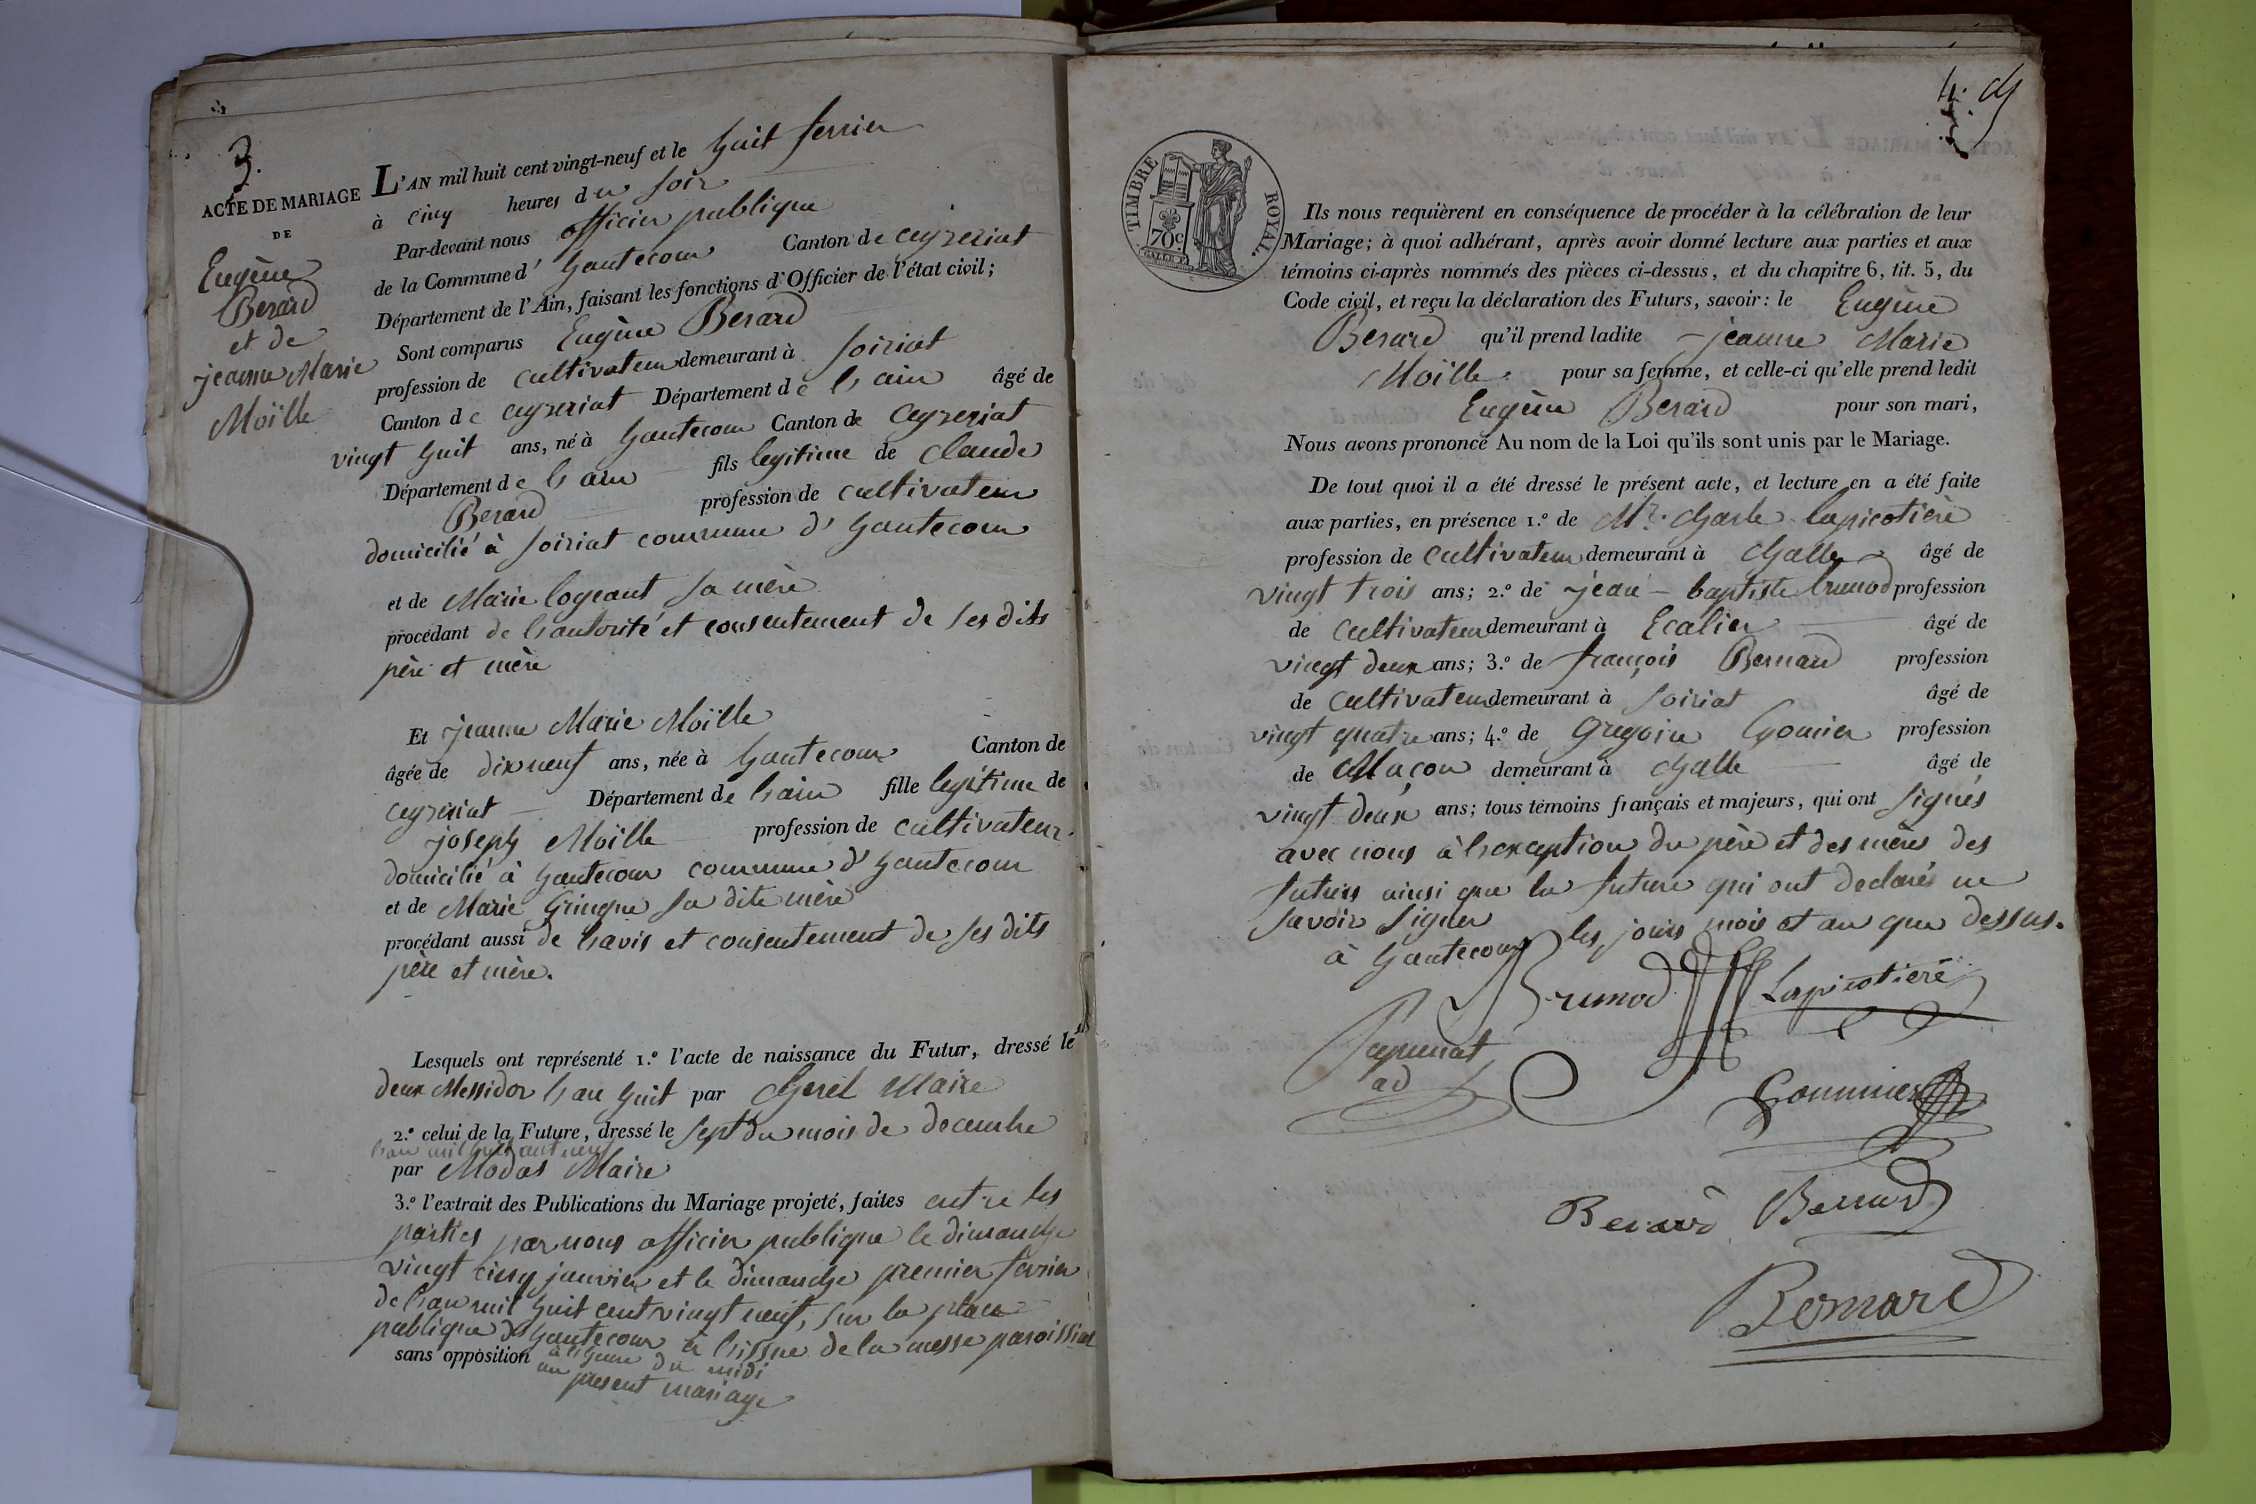 3.
ACTE DE MARIAGE
DE
Eugène
Berard
et de
jeanne Marie
Moïlle
L'AN mil huit cent vingt-neuf et le huit fevrier
à cinq heures du soir
Par-devant nous officier publique
de la Commune d' hautecour Canton de ceyzeriat
Département de l'Ain, faisant les fonctions d'Officier de l'état civil;
Sont comparus Eugène Berard
profession de cultivateur demeurant à soiriat
Canton de ceyzeriat Département de l'ain âgé de
vingt huit ans, né à hautecour Canton de Ceyzeriat
Département de l'ain fils legitime de claude
Berard profession de cultivateur
domicilié à soiriat commune d'hautecour
et de Marie logeant sa mère
procédant de l'autorité et consentement de ses dits
père et mère
Et jeanne Marie Moïlle
âgée de dix neuf ans, née à hautecour Canton de
ceyzeriat Département de l'ain fille legitime de
joseph Moïlle profession de cultivateur.
domicilié à hautecour commune d'hautecour
et de Marie Gringue sa dite mère
procédant aussi de l'avis et consentement de ses dits
père et mère.
Lesquels ont représenté 1.º l'acte de naissance du Futur, dressé le
deux Messidor l'an huit par Cherel Maire
2.º celui de la Future, dressé le sept du mois de decembre
l'an mil huit cent neuf
par Modas Maire
3.º l'extrait des Publications du Mariage projeté, faites entre les
parties par nous officier publique le dimanche
vingt cinq janvier et le dimanche premier fevrier
de l'an mil huit cent vingt neuf, sur la place
publique d'hautecour à l'issue de la messe paroissial
à l'heure du midi
sans opposition au present mariage
4.
TIMBRE ROYAL.
70c
Ils nous requièrent en conséquence de procéder à la célébration de leur
Mariage; à quoi adhérant, après avoir donné lecture aux parties et aux
témoins ci-après nommés des pièces ci-dessus, et du chapitre 6, tit. 5, du
Code civil, et reçu la déclaration des Futurs, savoir: le Eugène
Berard qu'il prend ladite jeanne Marie
Moïlle. pour sa femme, et celle-ci qu'elle prend ledit
Eugène Berard pour son mari,
Nous avons prononcé Au nom de la Loi qu'ils sont unis par le Mariage.
De tout quoi il a été dressé le présent acte, et lecture en a été faite
aux parties, en présence 1.º de Mr. charle lapicotière
profession de cultivateur demeurant à challe âgé de
vingt trois ans; 2.º de jean-baptiste brunod profession
de cultivateur demeurant à Ecalier âgé de
vingt deux ans; 3.º de françois Bernard profession
de cultivateur demeurant à soiriat âgé de
vingt quatre ans; 4.º de Gregoire Gomier profession
de Maçon demeurant à challe âgé de
vingt deux ans; tous témoins français et majeurs, qui ont signés
avec nous à l'exception du père et des mères des
futurs ainsi que la future qui ont declarés ne
savoir signer les jours mois et an que dessus.
à hautecour
Brunod Lapicotiere
ad
Goumier
Berard Bernard